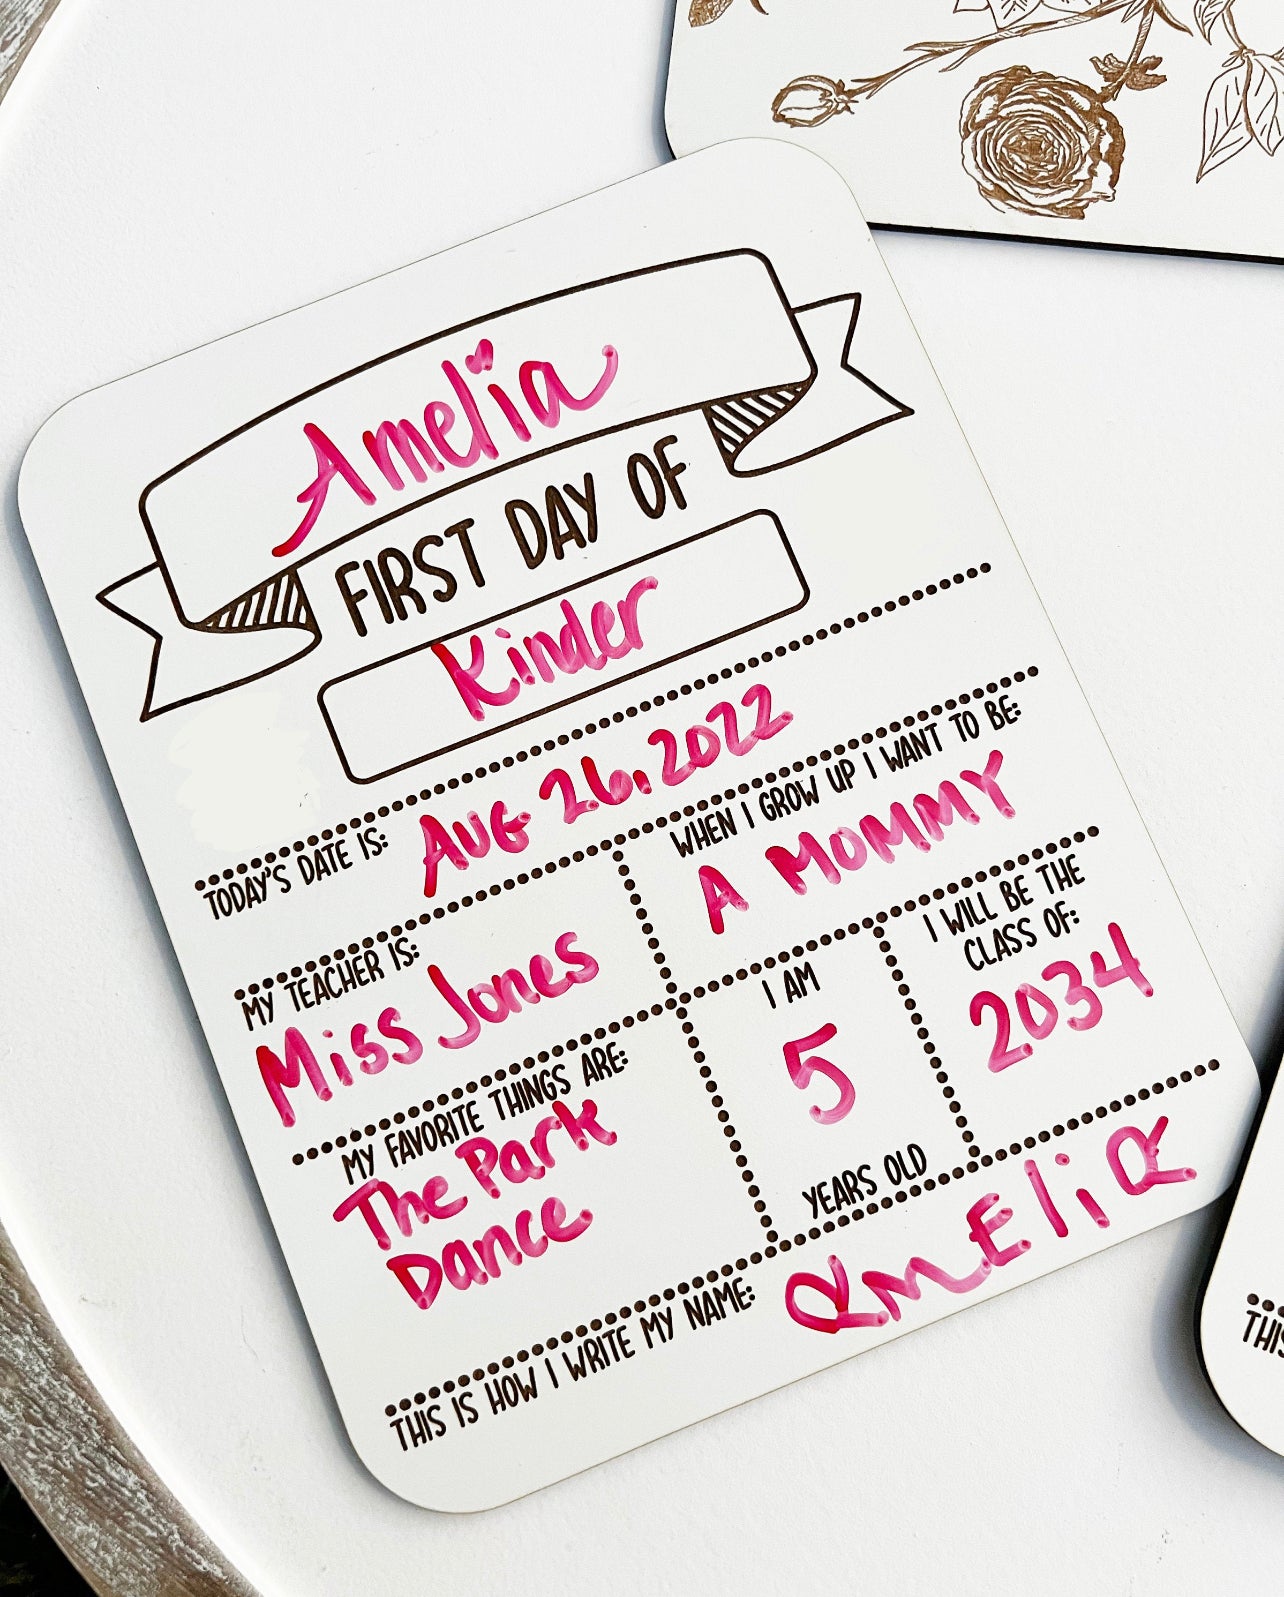 Amelia
FIRST DAY OF
Kinder
TODAY'S DATE IS: AUG 26, 2022
MY TEACHER IS:
Miss Jones
WHEN I GROW UP I WANT TO BE:
A MOMMY
MY FAVORITE THINGS ARE:
The Park
Dance
I AM
5
YEARS OLD
I WILL BE THE
CLASS OF:
2034
THIS IS HOW I WRITE MY NAME: AmEliA
THIS